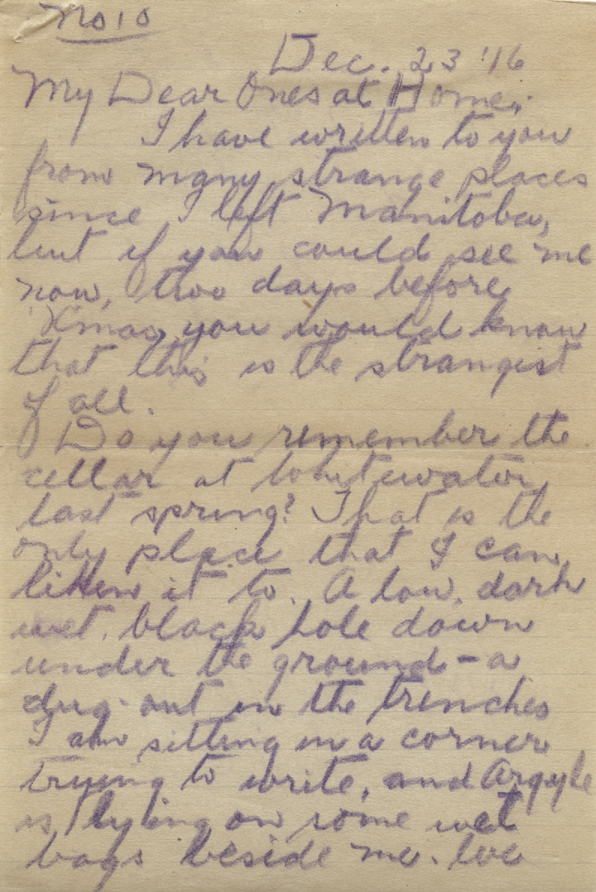 No 10
Dec. 23 '16
My Dear Ones at Home;
I have written to you
from many strange places
since I left Manitoba,
but if you could see me
now, two days before
Xmas, you would know
that this is the strangist
of all.
Do you remember the
cellar at Whitewater,
last spring? That is the
only place that I can
liken it to. A low, dark
wet, black hole down
under the ground - a
dug-out in the trenches
I am sitting in a corner
trying to write, and Argyle
is lying on some wet
bags beside me. We